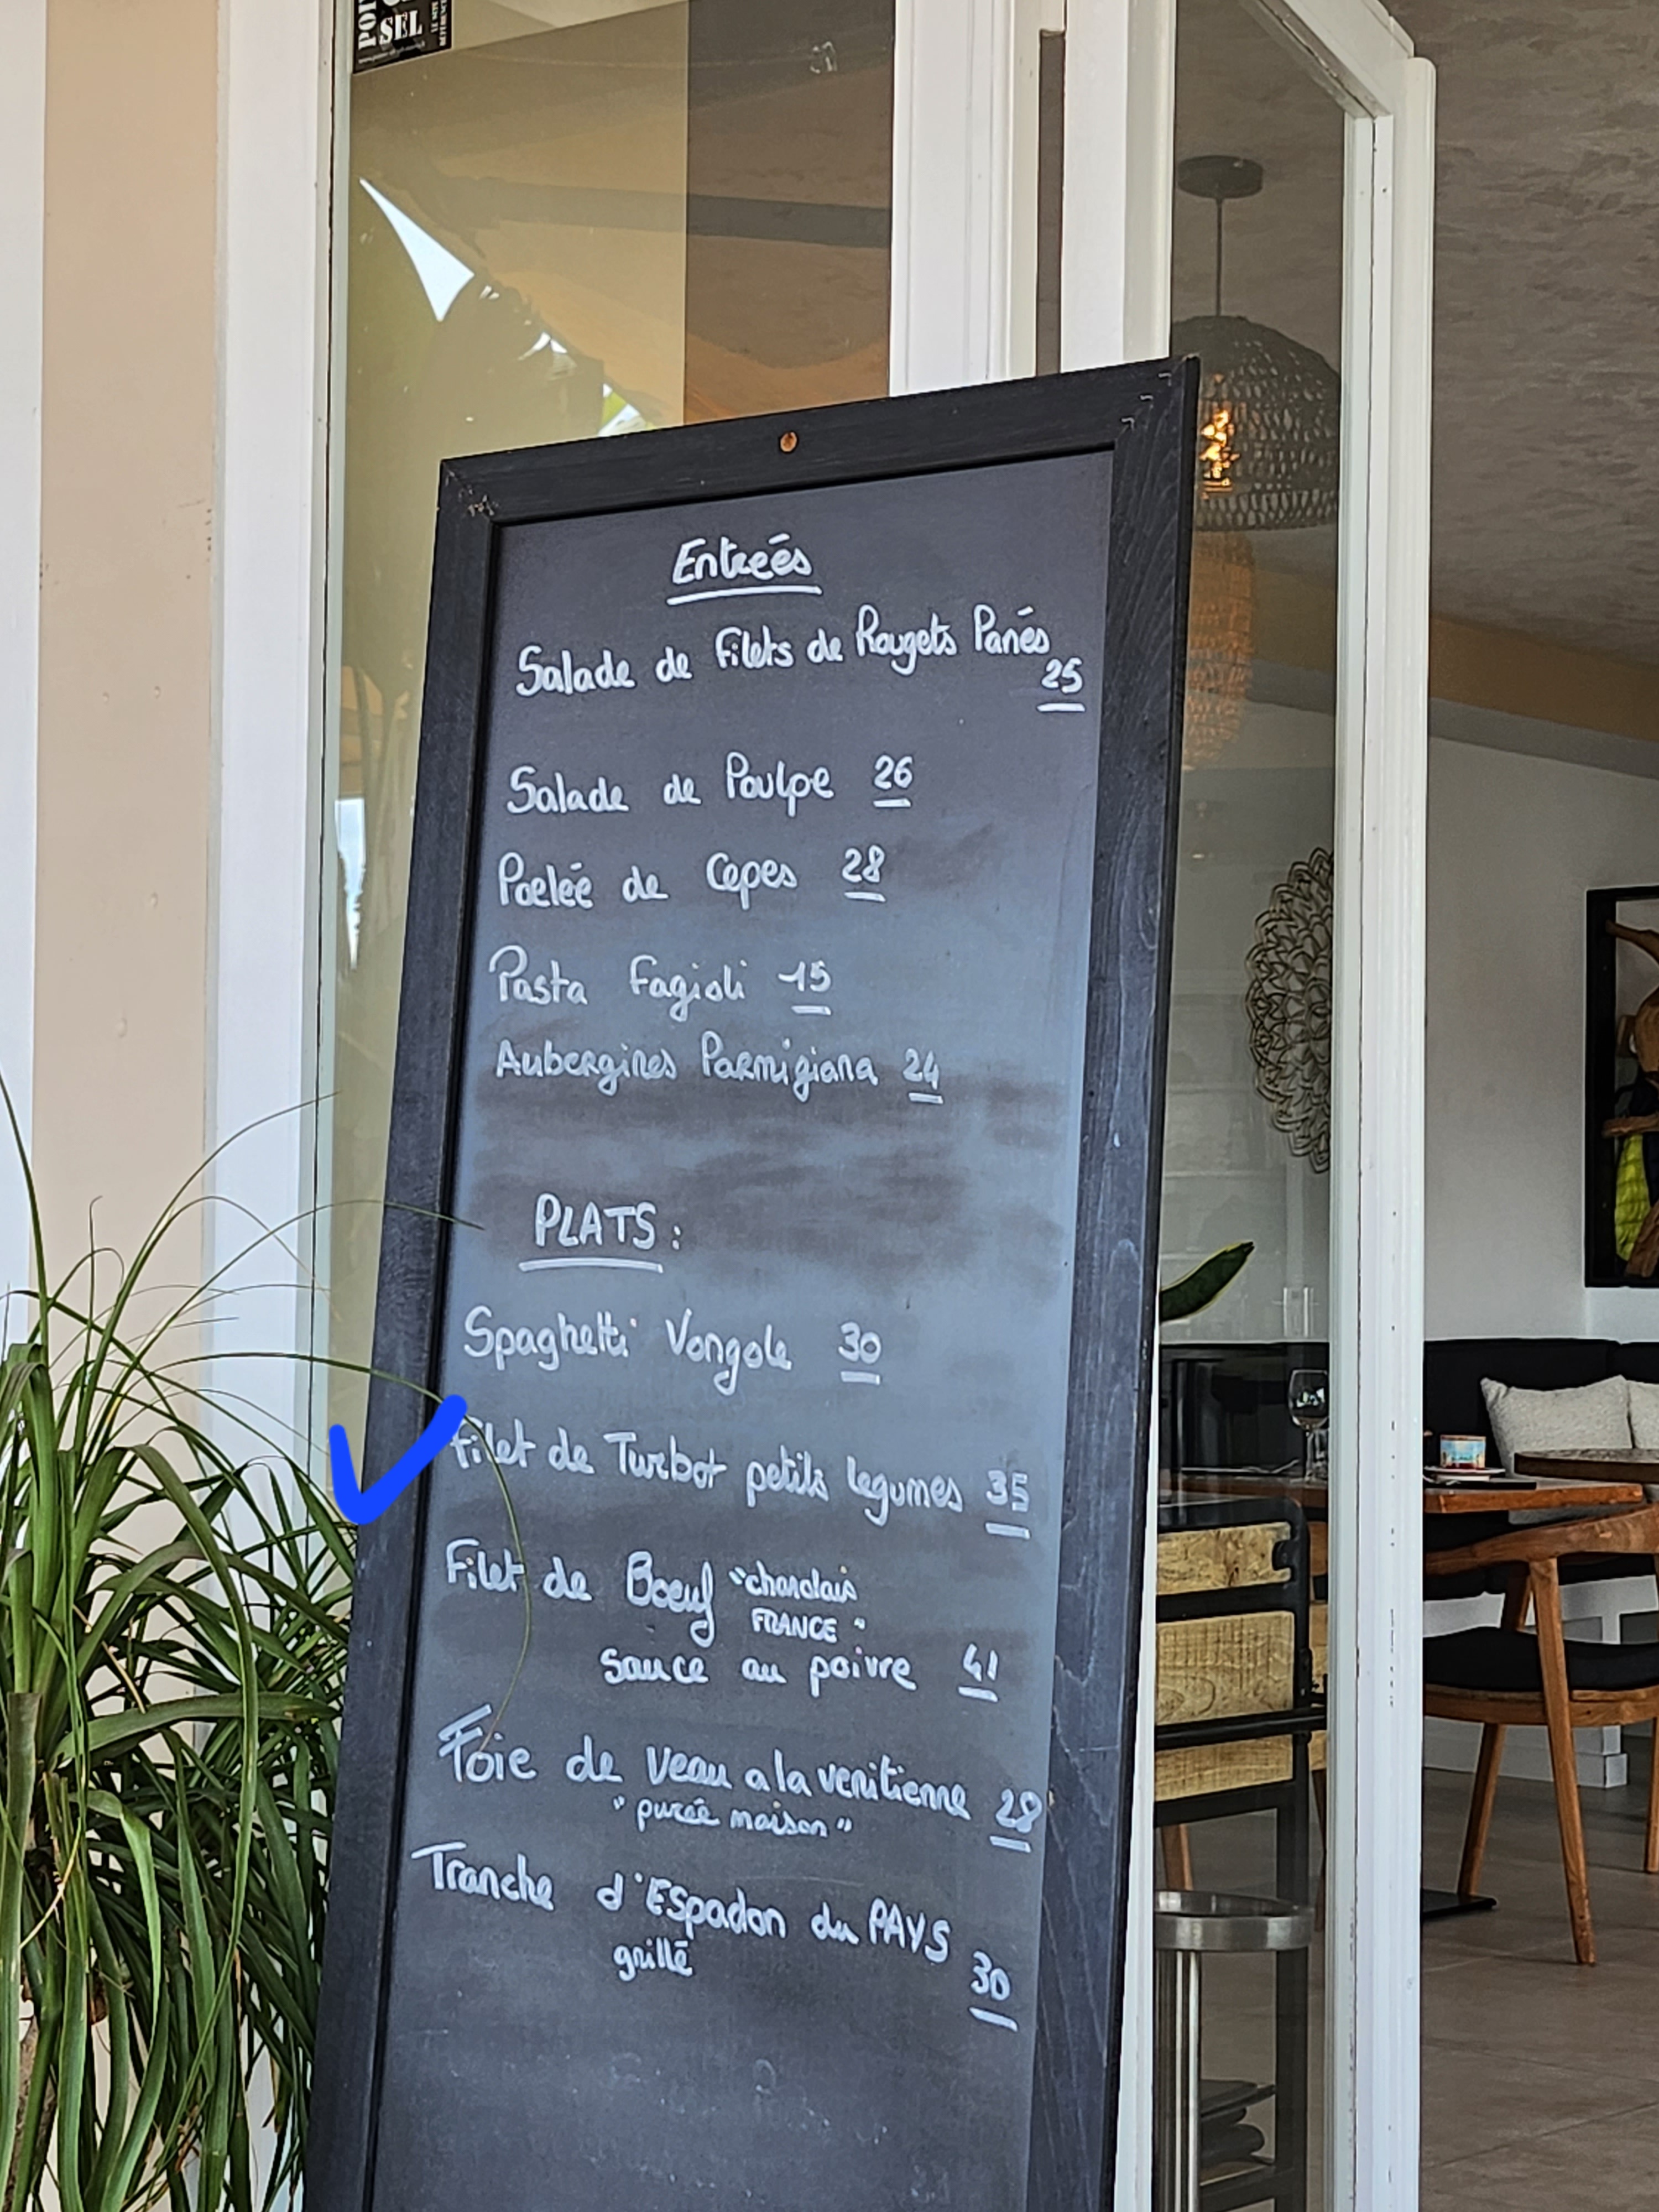 SEL
Entreés
Salade de Filets de Rougets Panés
25
Salade de Poulpe 26
Poeleé de Cepes 28
Pasta Fagioli 15
Aubergines Parmigiana 24
PLATS :
Spaghetti Vongole 30
Filet de Turbot petits legumes 35
Filet de Boeuf "charolais
FRANCE "
sauce au poivre 41
Foie de Veau a la venitienne 28
" pureé maison "
Tranche d'Espadon du PAYS
grillé
30